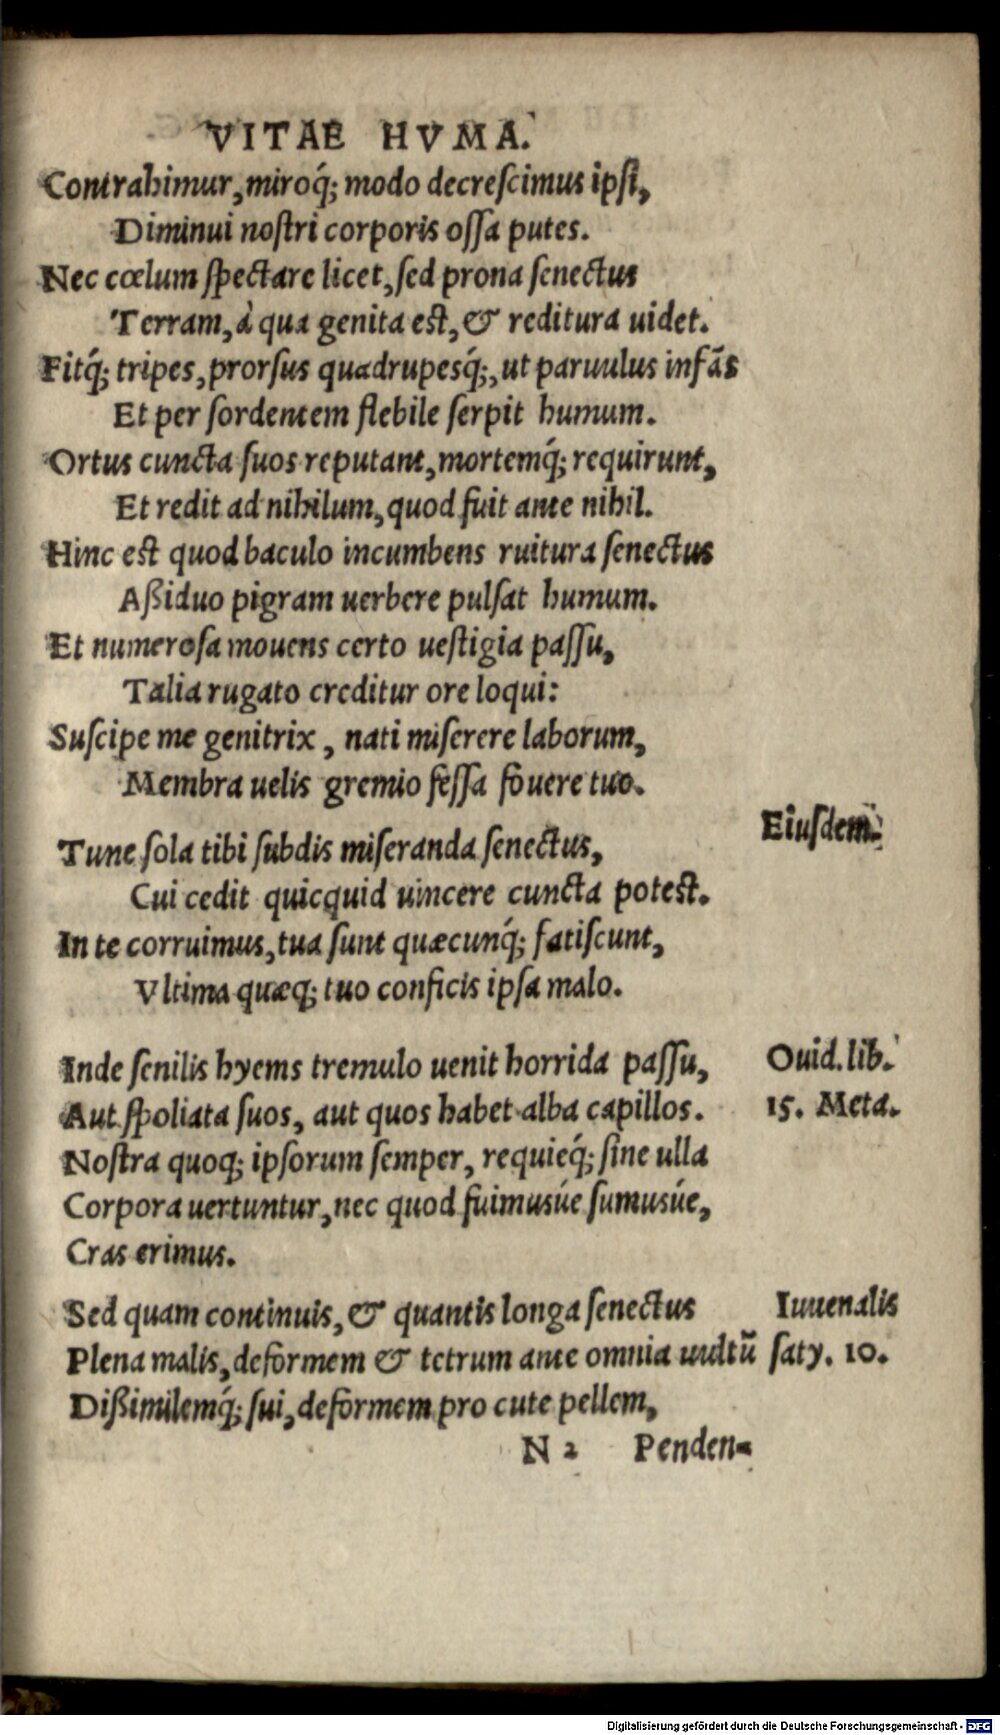 VITAE HVMA.
Contrahimur, miroq́; modo decreſcimus ipſi,
Diminui noſtri corporis oſſa putes.
Nec cœlum ſpectare licet, ſed prona ſenectus
Terram, à qua genita eſt, & reditura uidet.
Fitq́; tripes, prorſus quadrupesq́;, ut paruulus infãs
Et per ſordentem flebile ſerpit humum.
Ortus cuncta ſuos reputant, mortemq́; requirunt,
Et redit ad nihilum, quod fuit ante nihil.
Hinc eſt quod baculo incumbens ruitura ſenectus
Aßiduo pigram uerbere pulſat humum.
Et numeroſa mouens certo ueſtigia paſſu,
Talia rugato creditur ore loqui:
Suſcipe me genitrix, nati miſerere laborum,
Membra uelis gremio feſſa fouere tuo.
Eiuſdem.
Tune ſola tibi ſubdis miſeranda ſenectus,
Cui cedit quicquid uincere cuncta poteſt.
In te corruimus, tua ſunt quæcunq́; fatiſcunt,
Vltima quæq; tuo conficis ipſa malo.
Inde ſenilis hyems tremulo uenit horrida paſſu, Ouid. lib.
Aut ſpoliata ſuos, aut quos habet alba capillos. 15. Meta.
Noſtra quoq; ipſorum ſemper, requieq́; ſine ulla
Corpora uertuntur, nec quod fuimusúe ſumusúe,
Cras erimus.
Sed quam continuis, & quantis longa ſenectus Iuuenalis
Plena malis, deformem & tetrum ante omnia uultũ ſaty. 10.
Dißimilemq́; ſui, deformem pro cute pellem,
N 2 Penden-
Digitalisierung gefördert durch die Deutsche Forschungsgemeinschaft - DFG